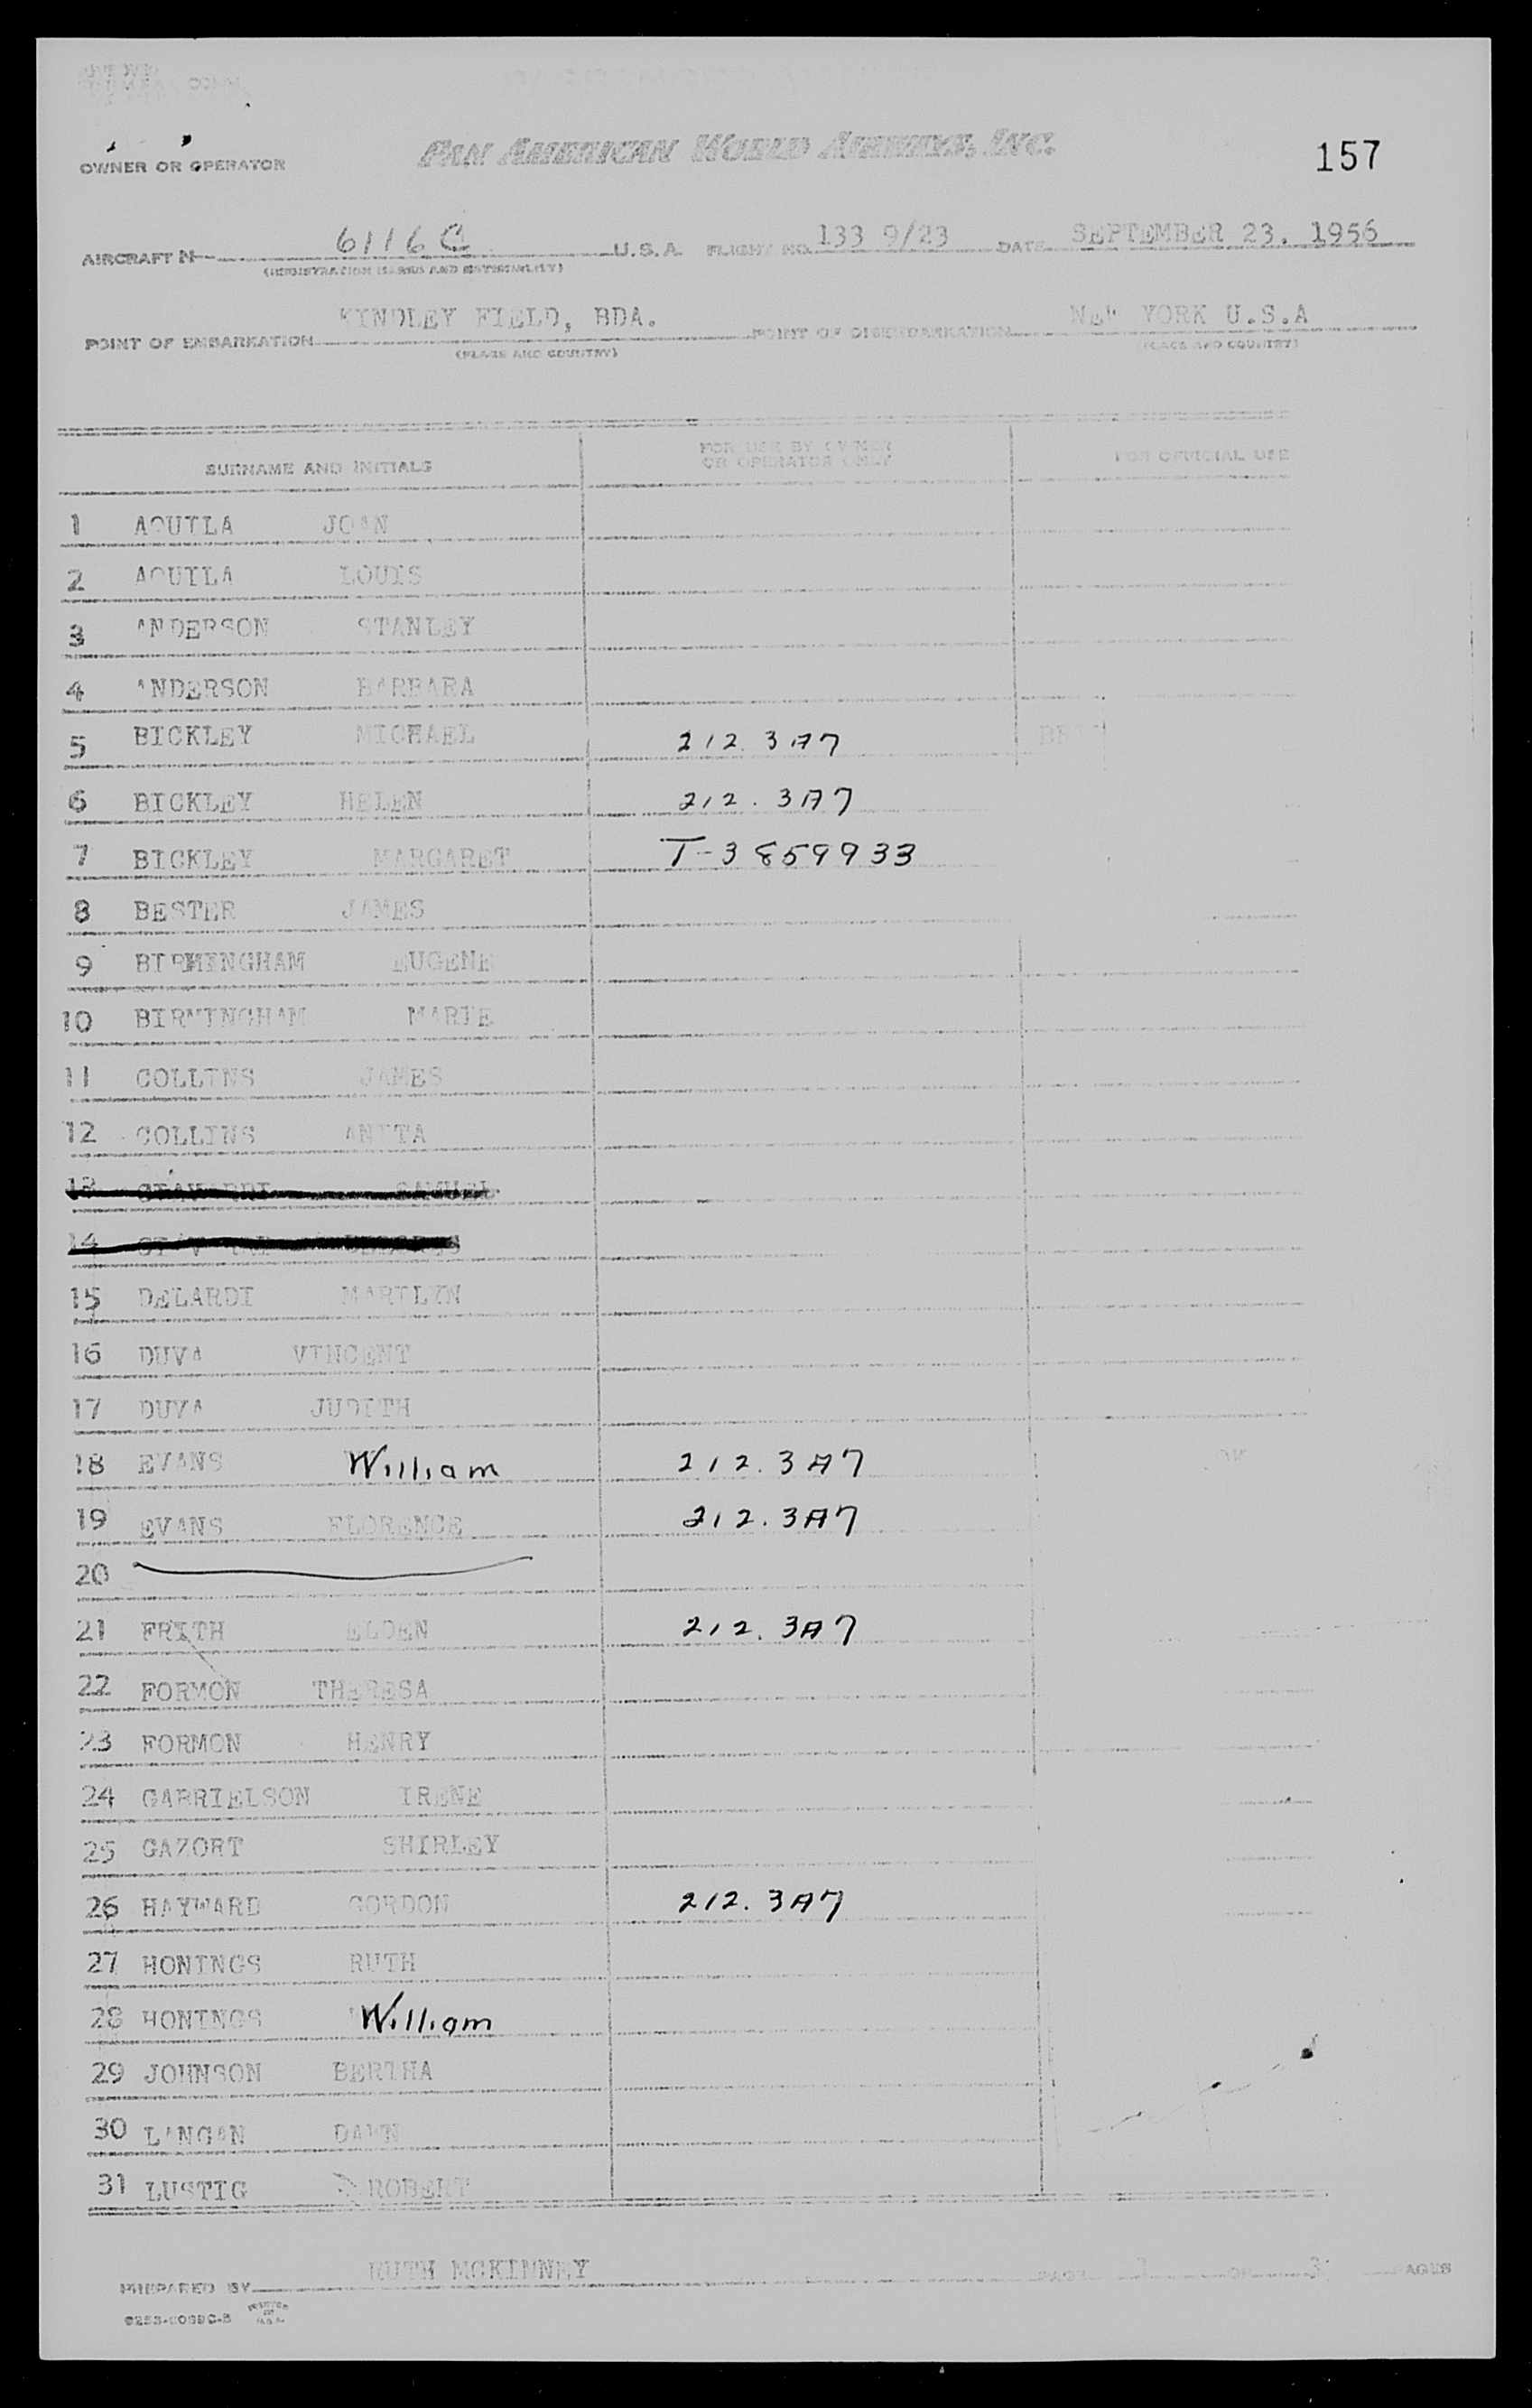 157
OWNER OR OPERATOR PAN AMERICAN WORLD AIRWAYS, INC.
AIRCRAFT N 6116C U.S.A. FLIGHT NO. 133 9/23 DATE SEPTEMBER 23, 1956
(REGISTRATION MARKS AND NATIONALITY)
POINT OF EMBARKATION KINDLEY FIELD, BDA. POINT OF DISEMBARKATION NEW YORK U.S.A
(PLACE AND COUNTRY) (PLACE AND COUNTRY)
SURNAME AND INITIALS FOR USE BY OWNER OR OPERATOR ONLY FOR OFFICIAL USE
1 AQUILA JOAN
2 AQUILA LOUIS
3 ANDERSON STANLEY
4 ANDERSON BARBARA
5 BICKLEY MICHAEL 212.3A7
6 BICKLEY HELEN 212.3A7
7 BICKLEY MARGARET T-3859933
8 BESTER JAMES
9 BIRMINGHAM EUGENE
10 BIRMINGHAM MARIE
11 COLLINS JAMES
12 COLLINS ANITA
13 SAMUEL
14
15 DELARDI MARILYN
16 DUVA VINCENT
17 DUVA JUDITH
18 EVANS William 212.3A7
19 EVANS FLORENCE 212.3A7
20
21 FRITH ELDEN 212.3A7
22 FORMON THERESA
23 FORMON HENRY
24 GABRIELSON IRENE
25 GAZORT SHIRLEY
26 HAYWARD GORDON 212.3A7
27 HONINGS RUTH
28 HONINGS William
29 JOHNSON BERTHA
30 LANGAN DAWN
31 LUSTIG ROBERT
PREPARED BY RUTH MCKINNEY PAGE OF 3 PAGES
PRINTED IN U.S.A.